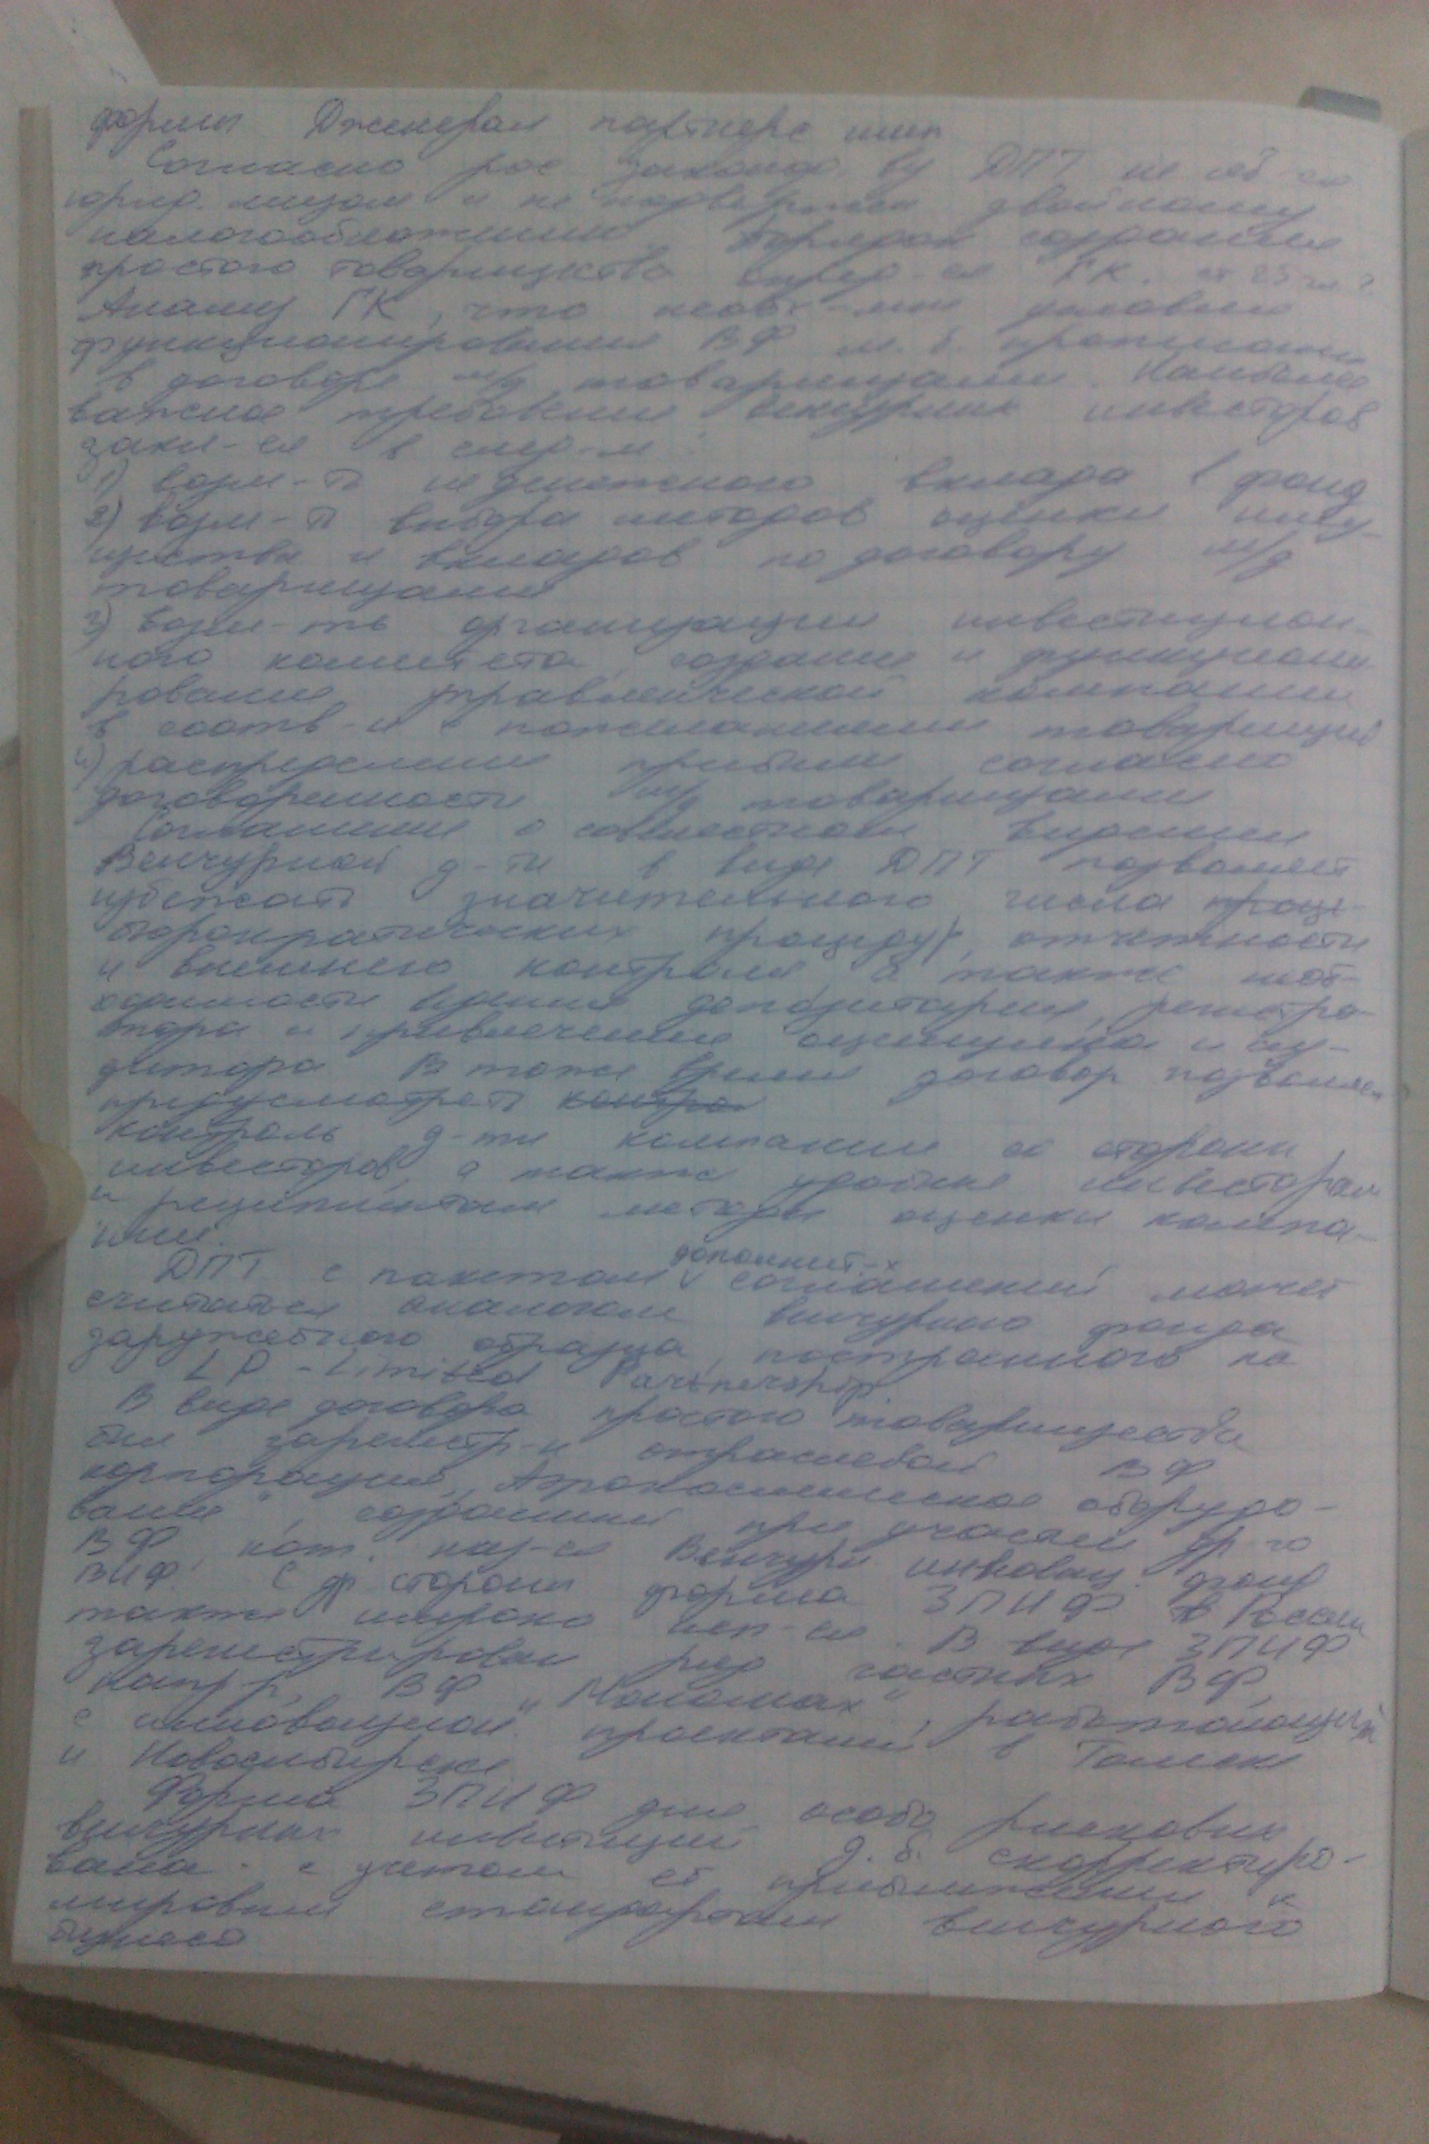 формы Дженерал партнерс шип
Согласно рос законод-ву ДПТ не яв-ся
юрид. лицом и не подвержен двойному
налогообложению. Порядок создания
простого товарищества опред-ся ГК.
Анализ ГК, что необх-мые условия
функционирования ВФ м. б. прописаны
в договоре м/д товарищами. Наиболее
важные требования венчурных инвесторов
закл-ся в след-м:
1) возм-ть неденежного вклада в фонд
2) возм-ть выбора методов оценки иму-
щества и вкладов по договору м/д
товарищами
3) возм-ть организации инвестицион-
ного комитета, создание и функциони
рование управленческой компании
в соотв-и с пожеланиями товарищей
4) распределение прибыли согласно
договоренности м/д товарищами
Соглашение о совместном ведении
Венчурной д-ти в виде ДПТ позволяет
избежать значительного числа проце-
бюрократических процедур, отчетности
и внешнего контроля, а также необ-
ходимости ведения депозитария, регистра-
тора и привлечения оценщика и ау-
дитора. В тоже время договор позволяет
предусмотреть контрол
контроль д-ти компании со стороны
инвесторов, а также удобные инвесторам
и реципиентам методы оценки компа-
нии.
ДПТ с пакетом дополнит-х соглашений может
считаться аналогом венчурного фонда
зарубежного образца, построенного на
LP - Limited Partnership.
В виде договора простого товарищества
был зарегистр-н отраслевой ВФ
корпорации "Аэрокосмическое оборудо-
вание", созданный при участии др-го
ВФ, кот. наз-ся Венчурн инновац. фонд
ВИФ. С др стороны форма ЗПИФ в России
также широко исп-ся. В виде ЗПИФ
зарегистрирован ряд частных ВФ,
напр-р, ВФ "Мономах", работающий
с инновацион. проектами в Томске
и Новосибирске
Форма ЗПИФ для особо рисковых
венчурных инвестиций д. б. скорректиро-
вана с учетом её приближения к
мировым стандартам венчурного
бизнеса